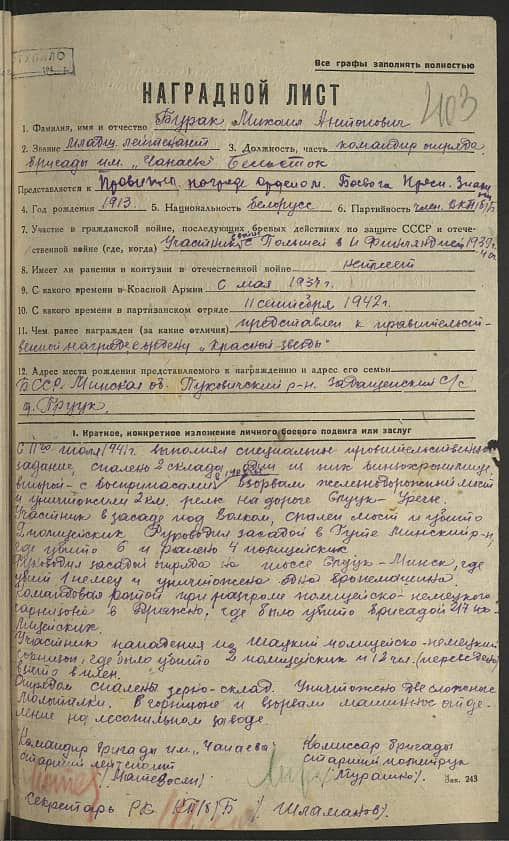 Все графы заполнять полностью
НАГРАДНОЙ ЛИСТ
403
1. Фамилия, имя и отчество Бурак Михаил Антонович
2. Звание младш. лейтенант 3. Должность, часть командир отряда
бригады им. „Чапаева"
Представляется к Правител. награде орденом Боевого Красн. Знамени
4. Год рождения 1913 5. Национальность белорусс 6. Партийность член ВКП/б/Б
7. Участие в гражданской войне, последующих боевых действиях по защите СССР и отече-
ственной войне (где, когда) Участник в войне с Польшей и Финляндией 1939-
40г.
8. Имеет ли ранения и контузии в отечественной войне не имеет
9. С какого времени в Красной Армии с мая 1934 г.
10. С какого времени в партизанском отряде 11 сентября 1942 г.
11. Чем ранее награжден (за какие отличия) представлен к правительст-
венной награде ордену „Красной звезды"
12. Адрес места рождения представляемого к награждению и адрес его семьи
БССР. Минская об. Пуховичский р-н. с/с
д.
1. Краткое, конкретное изложение личного боевого подвига или заслуг
июля 1941г. выполнял специальное правительственное
задание, спалено 2 склада, один из них винохранилище,
второй - с боеприпасами взорвали железнодорожный мост
и уничтожили 2 км. рельс на дороге Слуцк - Уречье.
Участник в засаде под Волком, спален мост и убито
2 полицейских. Руководил засадой в Минский р-н,
где убито 6 и ранено 4 полицейских.
Руководил засадой отряда на шоссе Слуцк - Минск, где
убит 1 немец и уничтожена одна бронемашина.
Командовал ротой при разгроме полицейско-немецкого
гарнизона в где было убито бригадой 217 по-
лицейских.
Участник нападения на Шацкий полицейско-немецкий
гарнизон, где было убито 2 полицейских и 12 чел.
взято в плен.
Отрядом спалены зерно-склад. Уничтожено две сложные
молотилки. и взорвали машинное отде-
ление на лесопильном заводе.
Командир бригады им. „Чапаева"
старший лейтенант
/Матевосян/
Комиссар бригады
старший политрук
/Мурашко/
Зак. 243
Секретарь РК КП/б/Б /Шламанов/